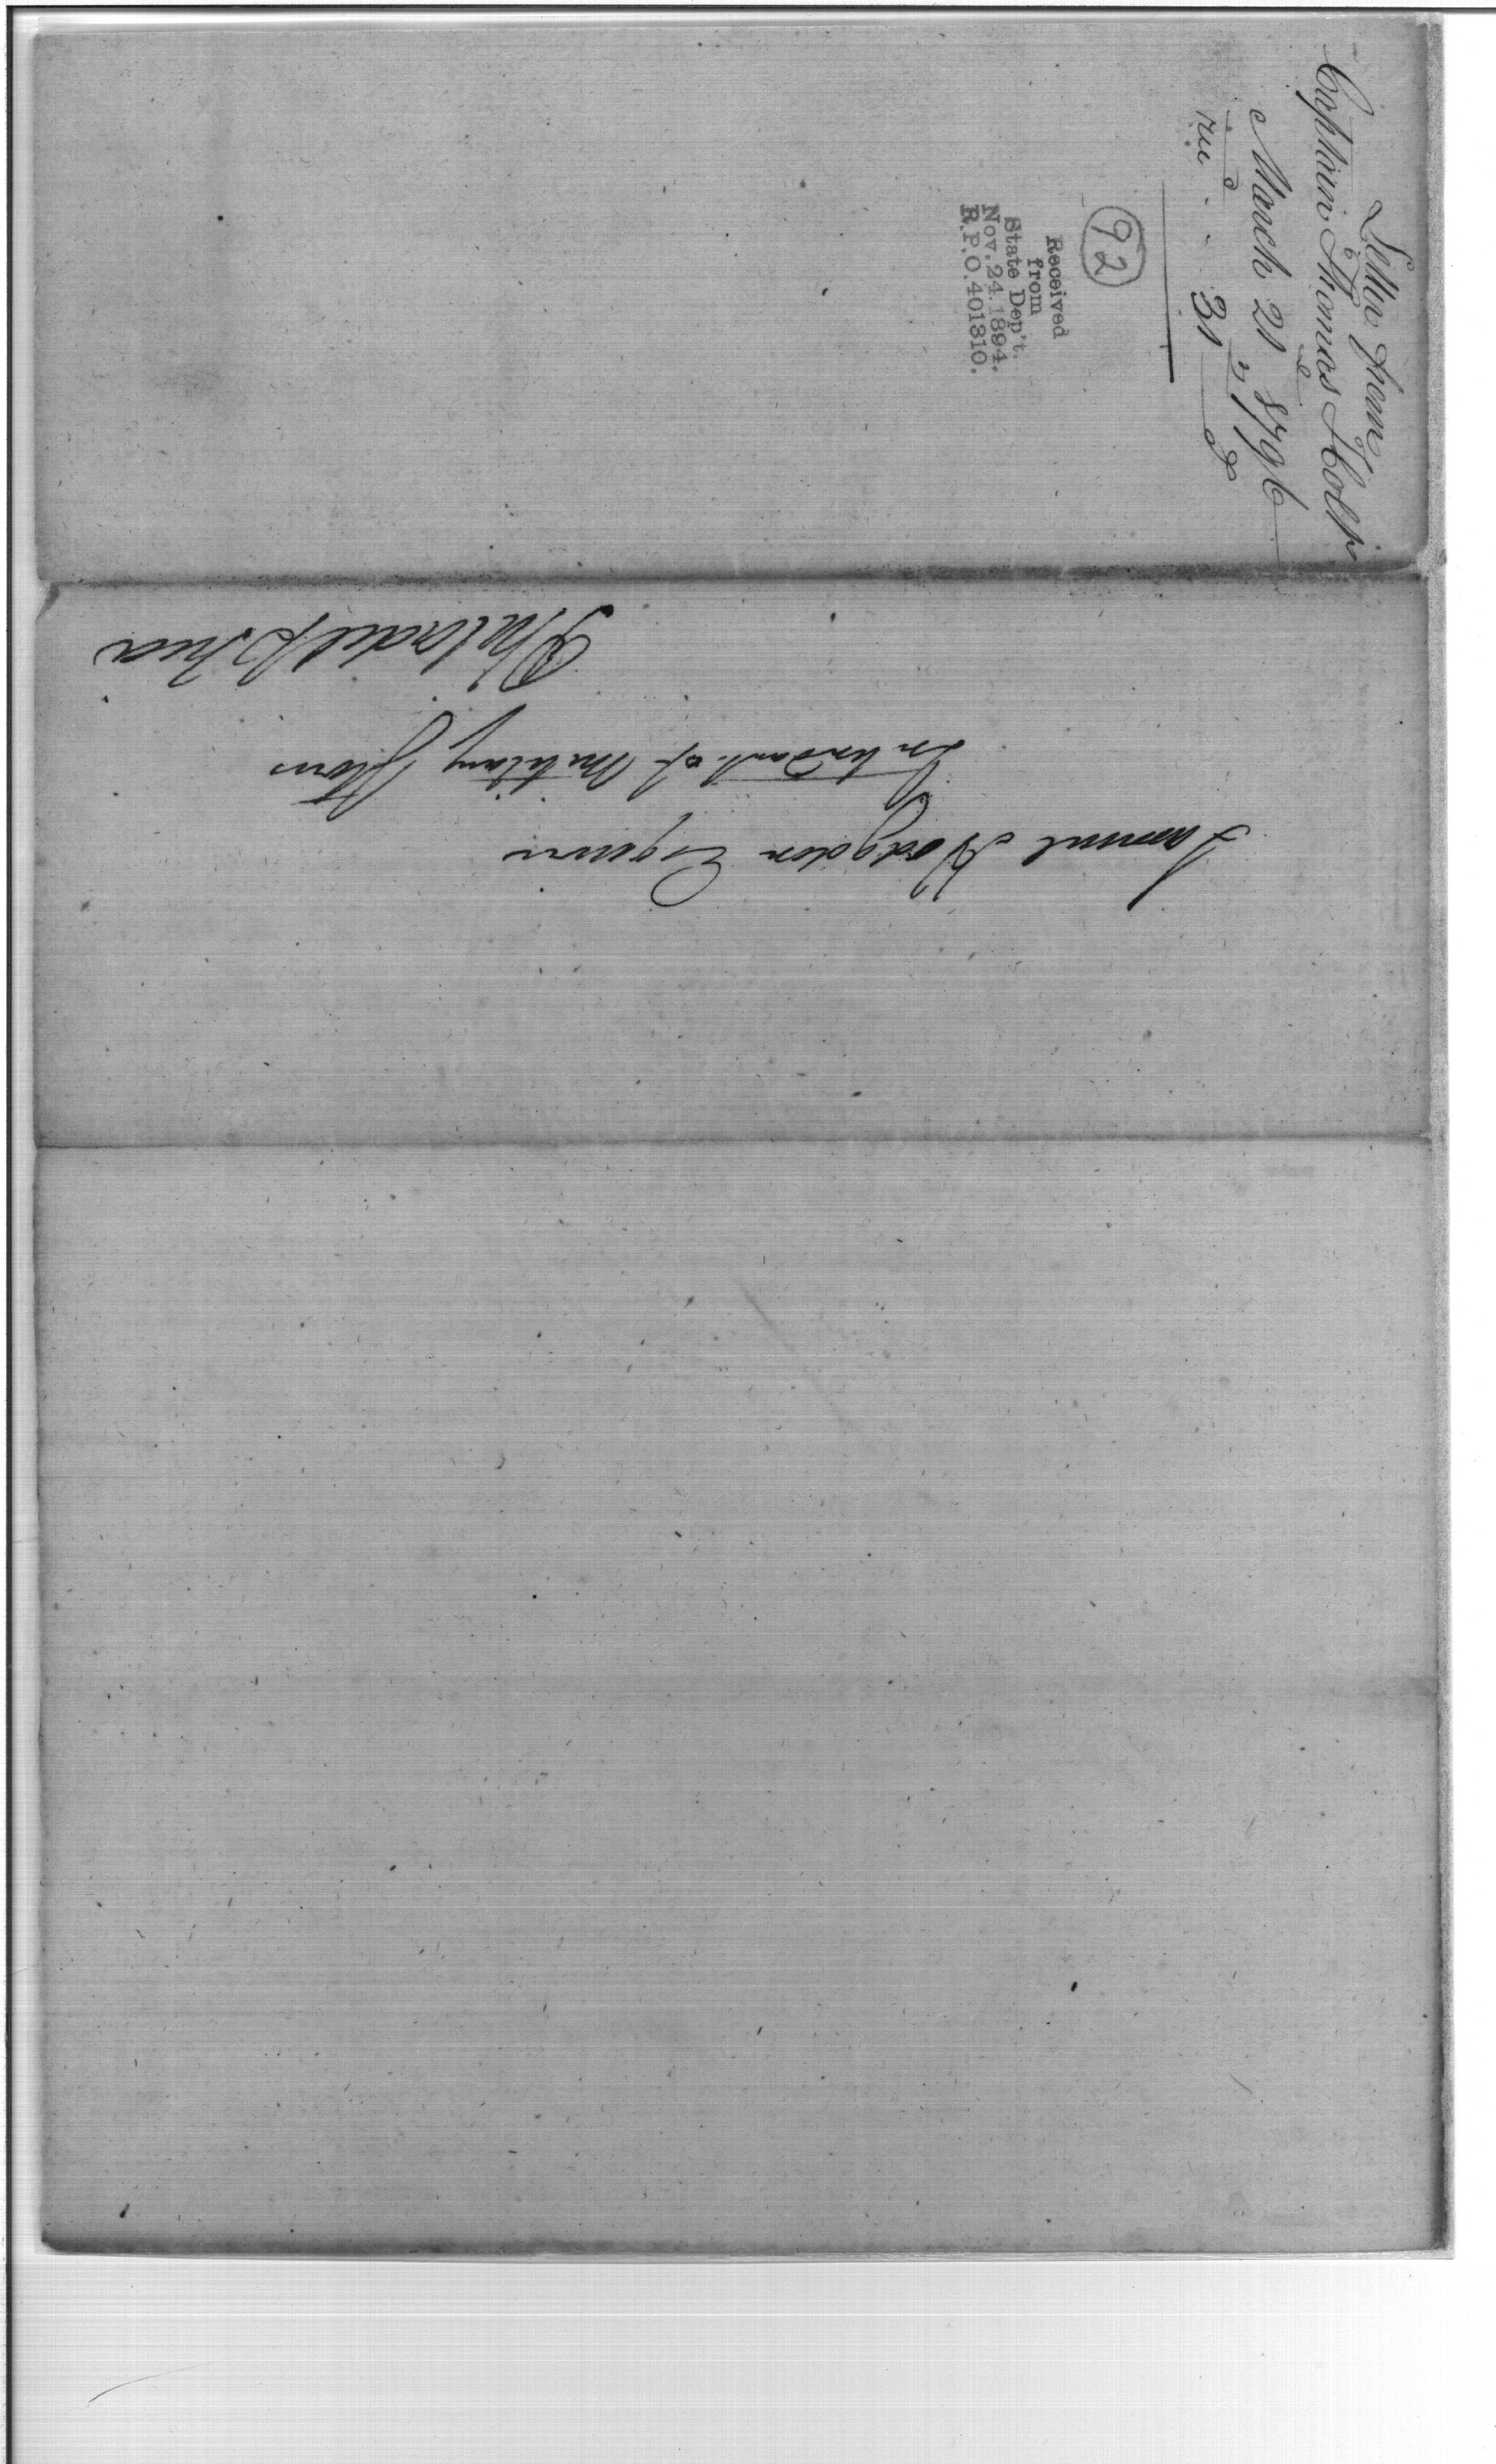 Letter from
Captain Thomas
March 21st 1796
31
92
Received
from
State Dep't.
Nov. 24. 1894.
R.P.O. 401310.
Samuel Hodgdon Esquire
Intendant of Military Stores
Philadelphia